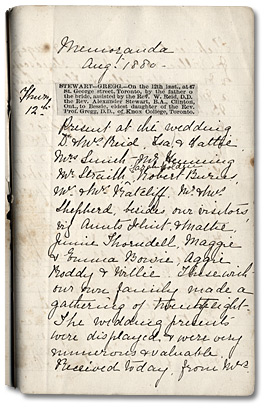 Memoranda
Augt 1880.
STEWART—GREGG.—On the 12th inst., at 67
St. George street, Toronto, by the father o
the bride, assisted by the Rev. W. Reid, D.D.
the Rev. Alexander Stewart, B.A., Clinton,
Ont., to Bessie, eldest daughter of the Rev.
Prof. Gregg, D.D., of Knox College, Toronto.
Thurs
12th
Present at the wedding
Dr & Mrs Reid, Isa & Hattie
Mrs Smith Mrs Hemming
Mr Straith Robert Burns
Mr & Mrs Ratcliff. Mr & Mrs
Shepherd, besides our visitors
viz Aunts & Mattie
Jennie Thorndell, Maggie
& Emma Bowie, Aggie
Roddy & Willie. These with
our own family made a
gathering of twenty eight.
The wedding presents
were displayed & were very
numerous & valuable.
Received today from Mrs